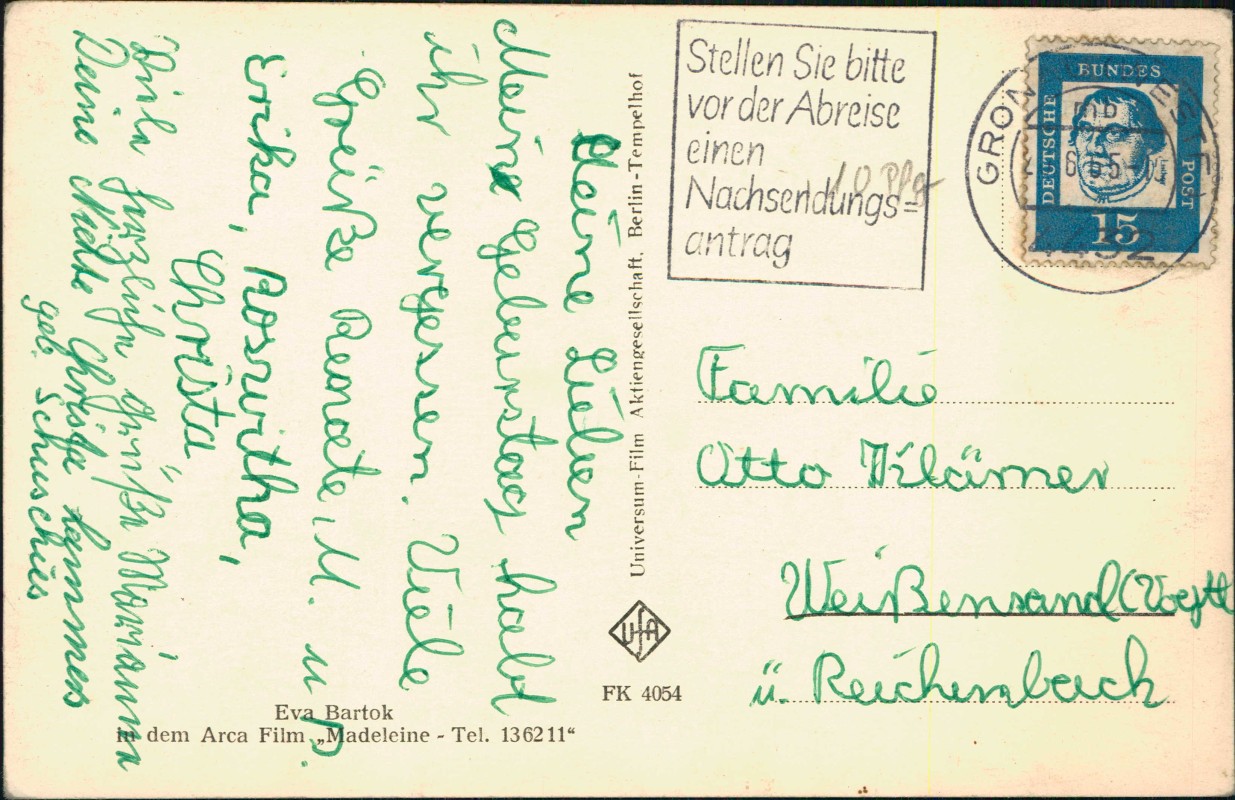 Meine Lieben
Meine Geburstag habt
ihr vergessen. Viele
Grüße Renate, M. u P.
Erika, Roswitha,
Christa
Viele herzliche Grüße Marianna
Deine Nichte Christa
geb. Schuschies
Universum-Film Aktiengesellschaft, Berlin-Tempelhof
UfA
FK 4054
Eva Bartok
in dem Arca Film „Madeleine - Tel. 136211“
Stellen Sie bitte
vor der Abreise
einen
Nachsendungs=
antrag
10 Pfg
DEUTSCHE BUNDES POST
15
Familie
Otto Klämer
Weißensand (Vogtl
ü. Reichenbach